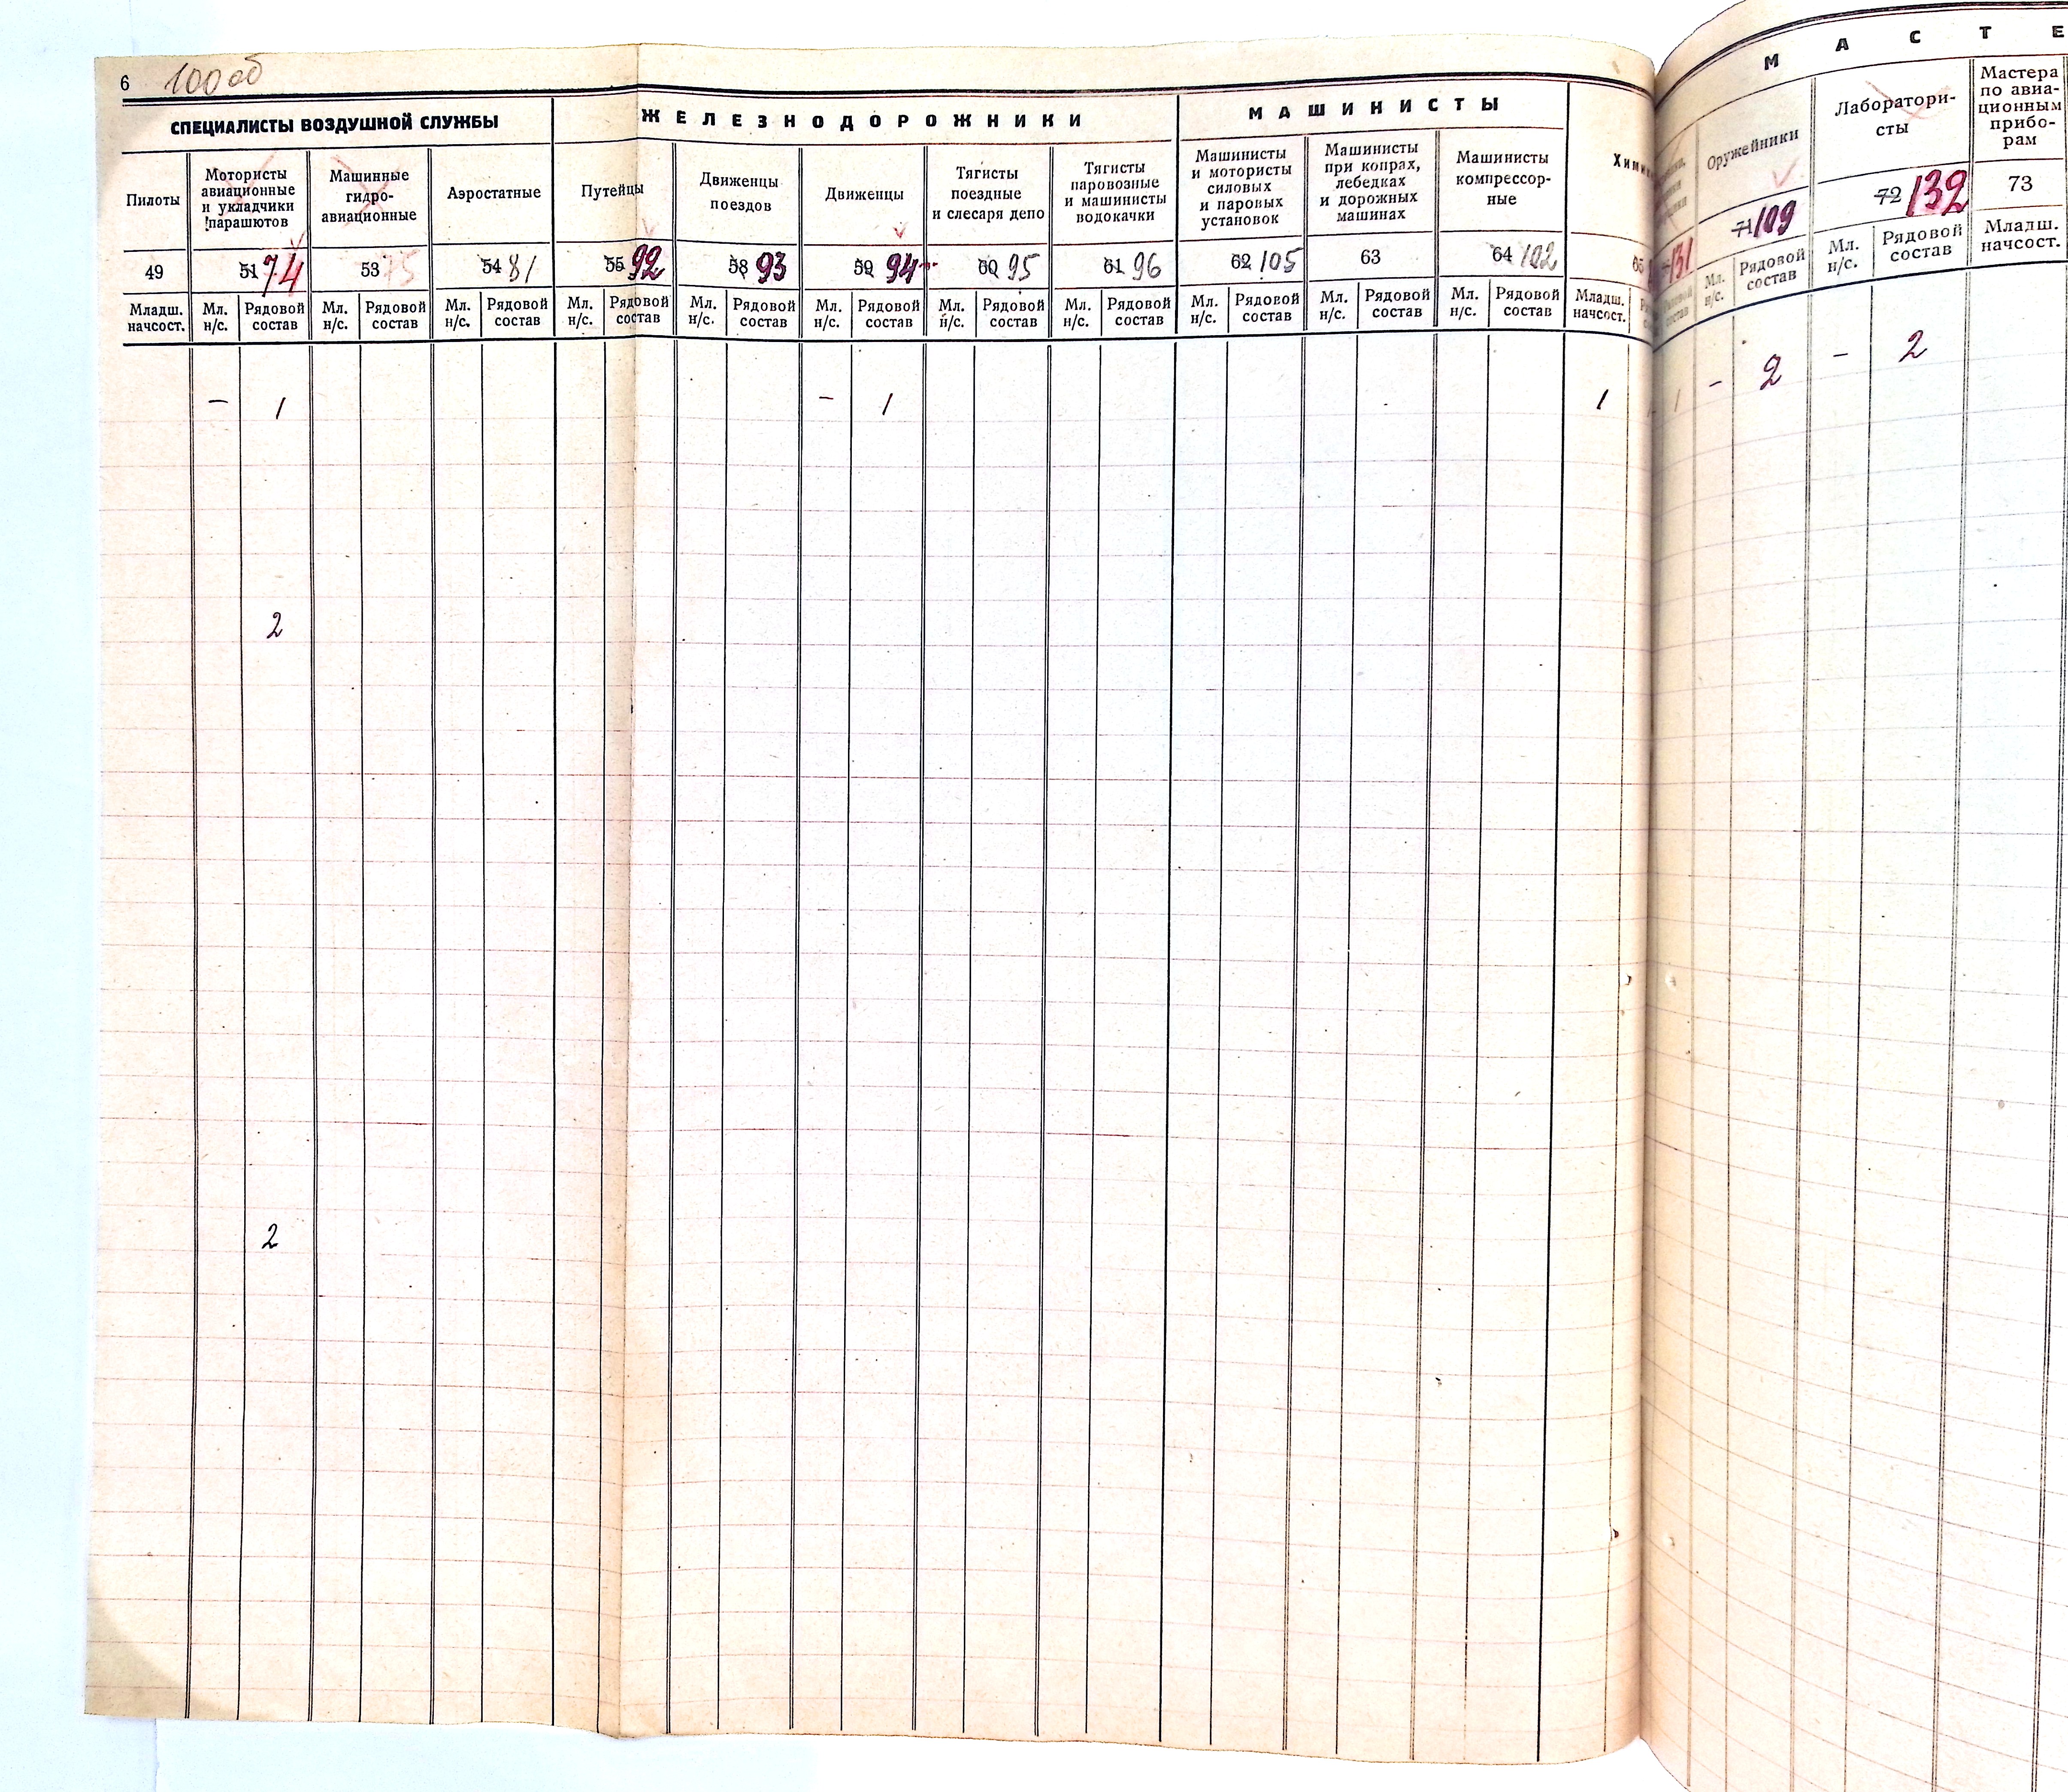 6 100 об
СПЕЦИАЛИСТЫ ВОЗДУШНОЙ СЛУЖБЫ ЖЕЛЕЗНОДОРОЖНИКИ МАШИНИСТЫ
Пилоты
Мотористы
авиационные
и укладчики
парашютов
Машинные
гидро-
авиационные
Аэростатные
Путейцы
Движенцы
поездов
Движенцы
Тягисты
поездные
и слесаря депо
Тягисты
паровозные
и машинисты
водокачки
Машинисты
и мотористы
силовых
и паровых
установок
Машинисты
при копрах,
лебедках
и дорожных
машинах
Машинисты
компрессор-
ные
49 51 74 53 75 54 81 55 92 58 93 59 94 60 95 61 96 62 105 63 64 102 65
Младш. начсост. Мл. н/с. Рядовой состав Мл. н/с. Рядовой состав Мл. н/с. Рядовой состав Мл. н/с. Рядовой состав Мл. н/с. Рядовой состав Мл. н/с. Рядовой состав Мл. н/с. Рядовой состав Мл. н/с. Рядовой состав Мл. н/с. Рядовой состав Мл. н/с. Рядовой состав Мл. н/с. Рядовой состав Младш. начсост.
— 1 — 1 1
2
2
М А С Т Е
Оружейники
Лаборатори-
сты
Мастера
по авиа-
ционным
прибо-
рам
131 71 109 72 132 73
Мл. н/с. Рядовой состав Мл. н/с. Рядовой состав Младш. начсост.
1 — 2 — 2